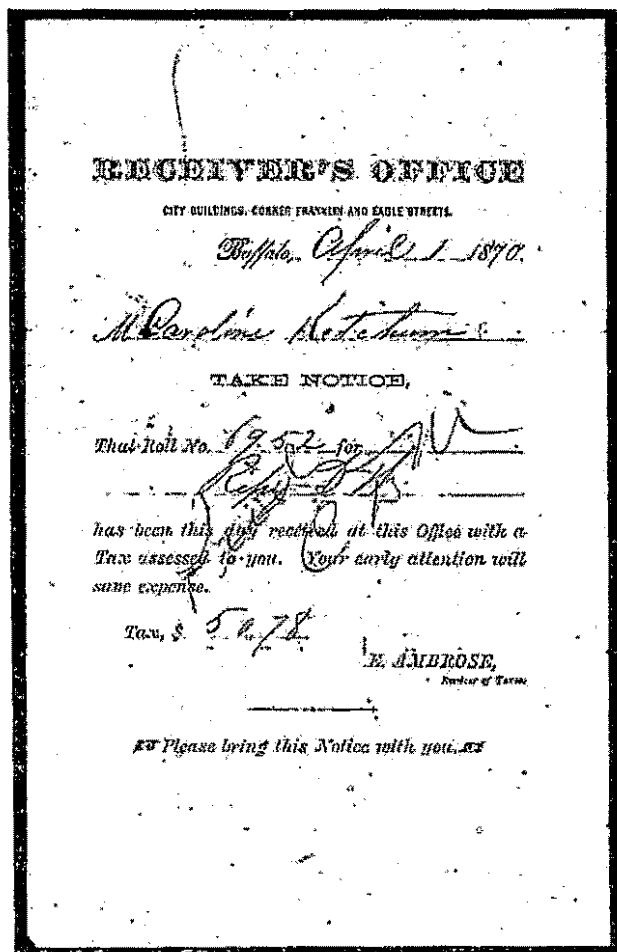 RECEIVER'S OFFICE
CITY BUILDINGS, CORNER FRANKLIN AND EAGLE STREETS.
Buffalo, April 1 1870.
M Caroline Ketchum
TAKE NOTICE,
That Roll No. 6952 for
has been this day received at this Office with a
Tax assessed to you. Your early attention will
save expense.
Tax, $ 50.78
AMBROSE,
Receiver of Taxes
Please bring this Notice with you.